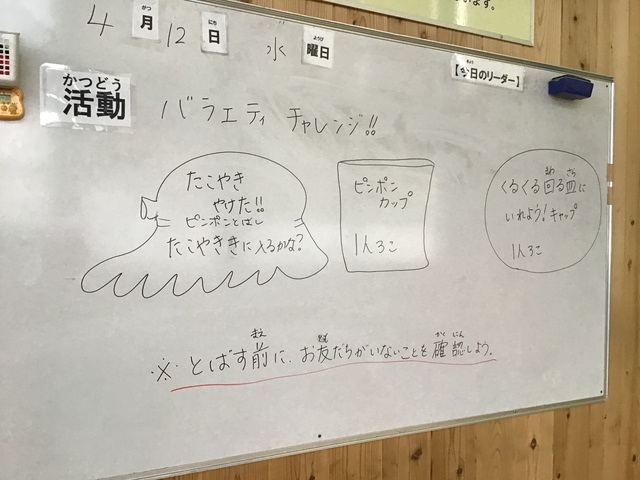 います。
4月12日 水曜日
がつ にち ようび
【今日のリーダー】
きょう
かつどう
活動
バラエティ チャレンジ!!
たこやき
やけた!!
ピンポンとばし
たこやききに入るかな?
ピンポン
カップ
1人3こ
まわ さら
くるくる回る皿に
いれよう!キャップ
1人3こ
まえ とも かく にん
※とばす前に、お友だちがいないことを確認しよう。